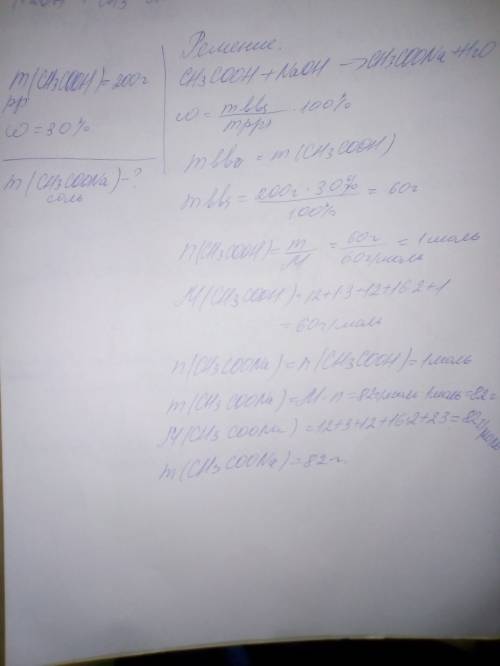 m(CH3COOH)=200г
рр
ω=30%
m(CH3COONa)-?
соль
Решение.
CH3COOH+NaOH→CH3COONa+H2O
ω = mвва/mрра · 100%
mвва = m(CH3COOH)
mвва = 200г · 30%/100% = 60г
n(CH3COOH) = m/M = 60г/60г/моль = 1моль
M(CH3COOH)=12+1·3+12+16·2+1
=60г/моль
n(CH3COONa)=n(CH3COOH)=1моль
m(CH3COONa)=M·n=82г/моль·1моль=82г
M(CH3COONa)=12+3+12+16·2+23=82г/моль
m(CH3COONa)=82г.